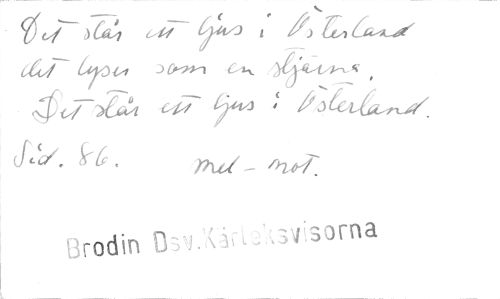 Det står ett ljus i Österland
det lyser som en stjärna.
Det står ett ljus i Österland.
Sid. 86. mel-not.
Brodin Dsv.Kärleksvisorna